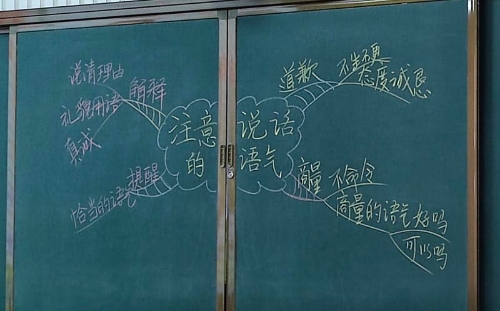 说清理由
礼貌用语
真诚
解释
恰当的语气
提醒
注意说话
的语气
道歉
态度诚恳
商量
不命令
商量的语气好吗
可以吗